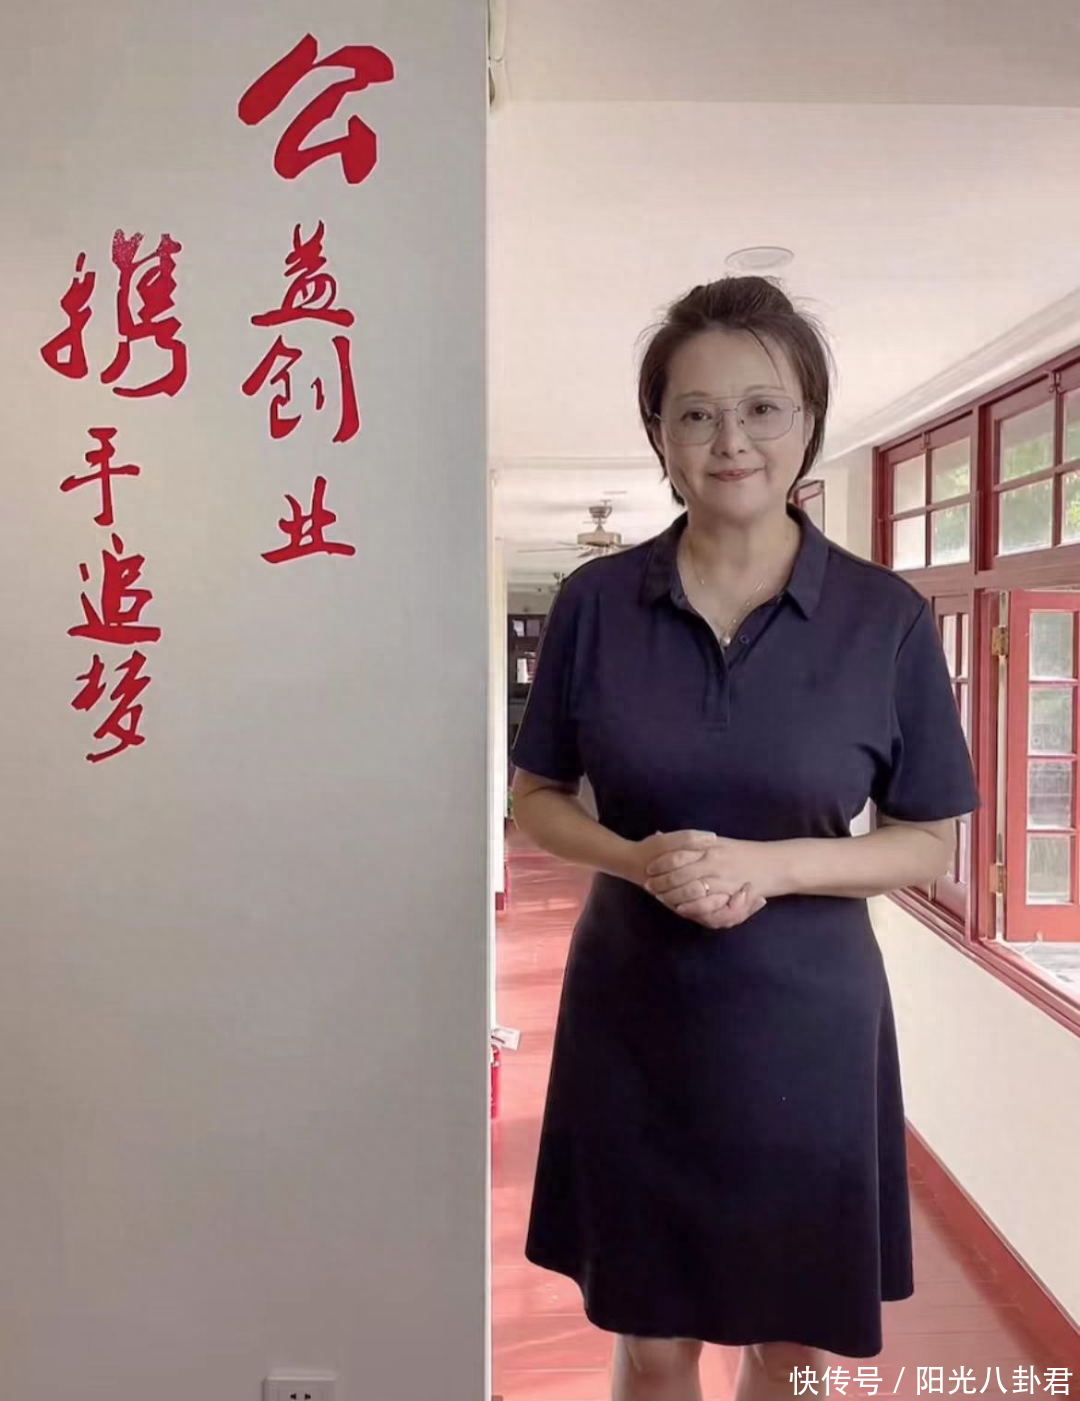 公益创业
携手追梦
快传号 / 阳光八卦君